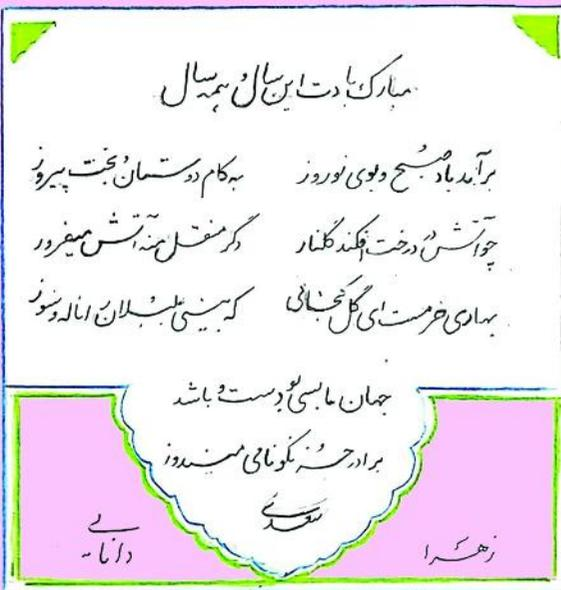 مبارک بادت این سال و همه سال
برآمد باد صبح و بوی نوروز به کام دوستان و بخت پیروز
چو آتش در درخت افکند گلنار دگر منقل منه آتش میفروز
بهاری خرمست ای گل کجائی که بینی بلبلان را ناله و سوز
جهان بی ما بسی بودست و باشد
برادر جز نکونامی میندوز
سعدی
زهرا دانایی